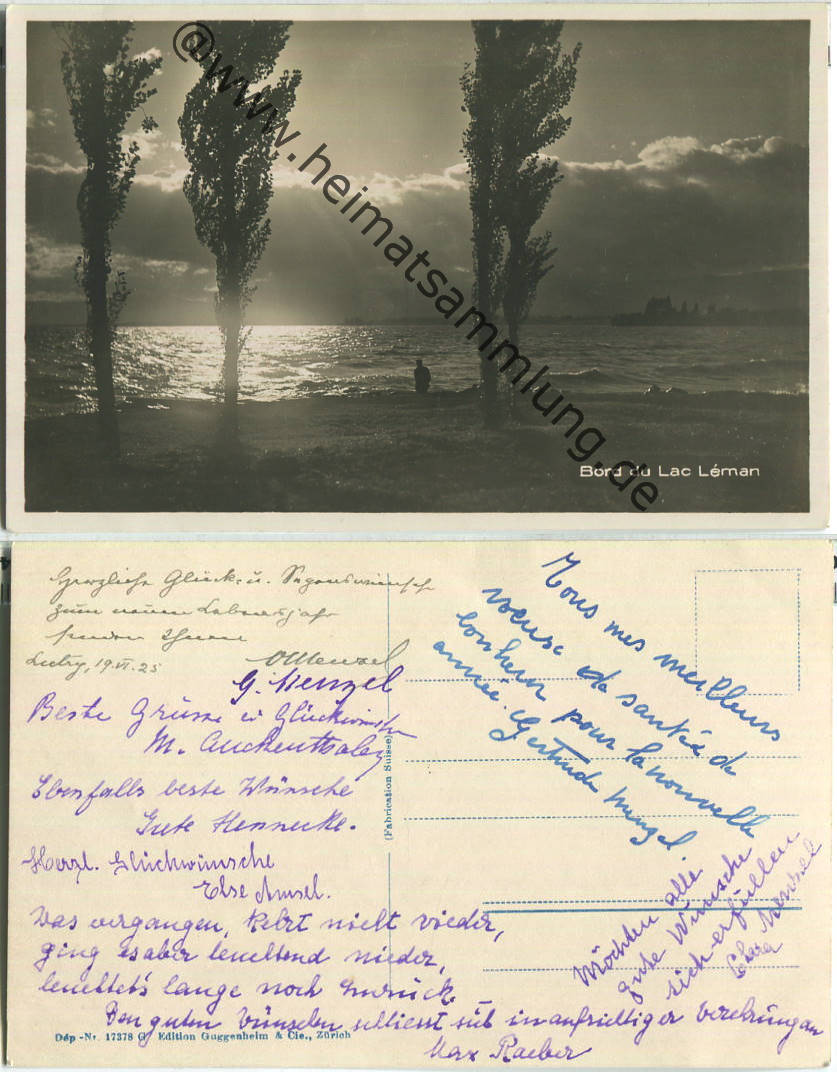 @www.heimatsammlung.de
Bord du Lac Léman
Herzliche Glück- u. Segenswünsche
zum neuen Lebensjahr
Lutry, 19.VI.25
G. Menzel
Beste Grüsse u Glückwünsche
M. Auckenthaler
Ebenfalls beste Wünsche
Grete Hennecke.
Herzl. Glückwünsche
Else Amsel.
Was vergangen, kehrt nicht wieder,
ging es aber leuchtend nieder,
leuchtet's lange noch zurück.
Den guten Wünschen schliesst sich in aufrichtiger Verehrung an
Max Raeber
(Fabrication Suisse)
Tous mes meilleurs
voeux de santé de
bonheur pour la nouvelle
année. Gertrude Menzel.
Möchten alle
gute Wünsche
sich erfüllen
Clara Menzel
Dép.-Nr. 17378 G. Edition Guggenheim & Cie., Zürich